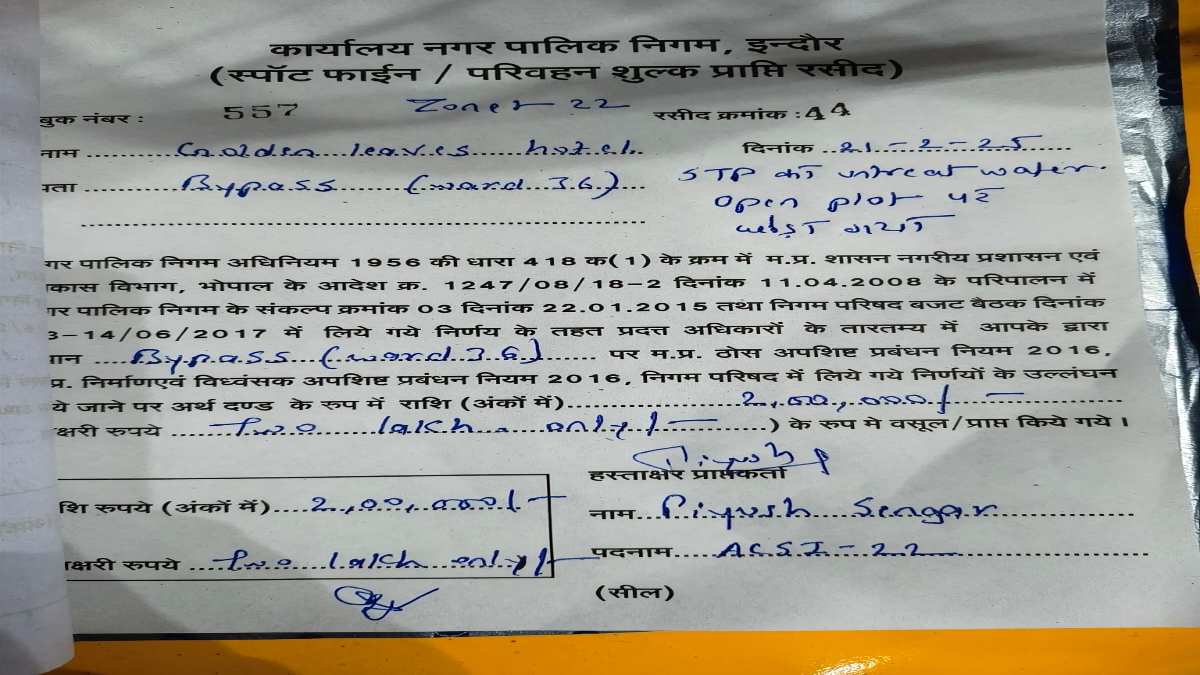 कार्यालय नगर पालिक निगम, इन्दौर
(स्पॉट फाईन / परिवहन शुल्क प्राप्ति रसीद)
बुक नंबर : 557 Zone 22 रसीद क्रमांक : 44
नाम Golden leaves hotel. दिनांक 21-2-25
पता Bypass (ward 36) STP का untreat water.
open plot पर
गया
गर पालिक निगम अधिनियम 1956 की धारा 418 क(1) के क्रम में म.प्र. शासन नगरीय प्रशासन एवं
कास विभाग, भोपाल के आदेश क्र. 1247/08/18-2 दिनांक 11.04.2008 के परिपालन में
गर पालिक निगम के संकल्प क्रमांक 03 दिनांक 22.01.2015 तथा निगम परिषद बजट बैठक दिनांक
3-14/06/2017 में लिये गये निर्णय के तहत प्रदत्त अधिकारों के तारतम्य में आपके द्वारा
ान Bypass (ward 36) पर म.प्र. ठोस अपशिष्ट प्रबंधन नियम 2016,
प्र. निर्माणएवं विध्वंसक अपशिष्ट प्रबंधन नियम 2016, निगम परिषद में लिये गये निर्णयों के उल्लंघन
ये जाने पर अर्थ दण्ड के रुप में राशि (अंकों में) 2,00,000/-
क्षरी रुपये Two lakh only/- ) के रुप मे वसूल/प्राप्त किये गये ।
हस्ताक्षर प्राप्तकर्ता
शि रुपये (अंकों में) 2,00,000/-
नाम Piyush Sengar
क्षरी रुपये Two lakh only/-
पदनाम ACSI-22
(सील)